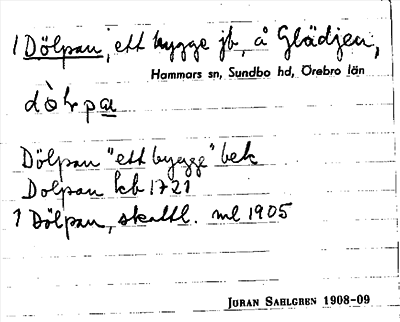 1 Dölpan, ett bygge jb, å Glädjen,
Hammars sn, Sundbo hd, Örebro län
Dölpan "ett bygge" bek
Dolpan kb 1721
1 Dölpan, skattl. ml 1905
JURAN SAHLGREN 1908-09